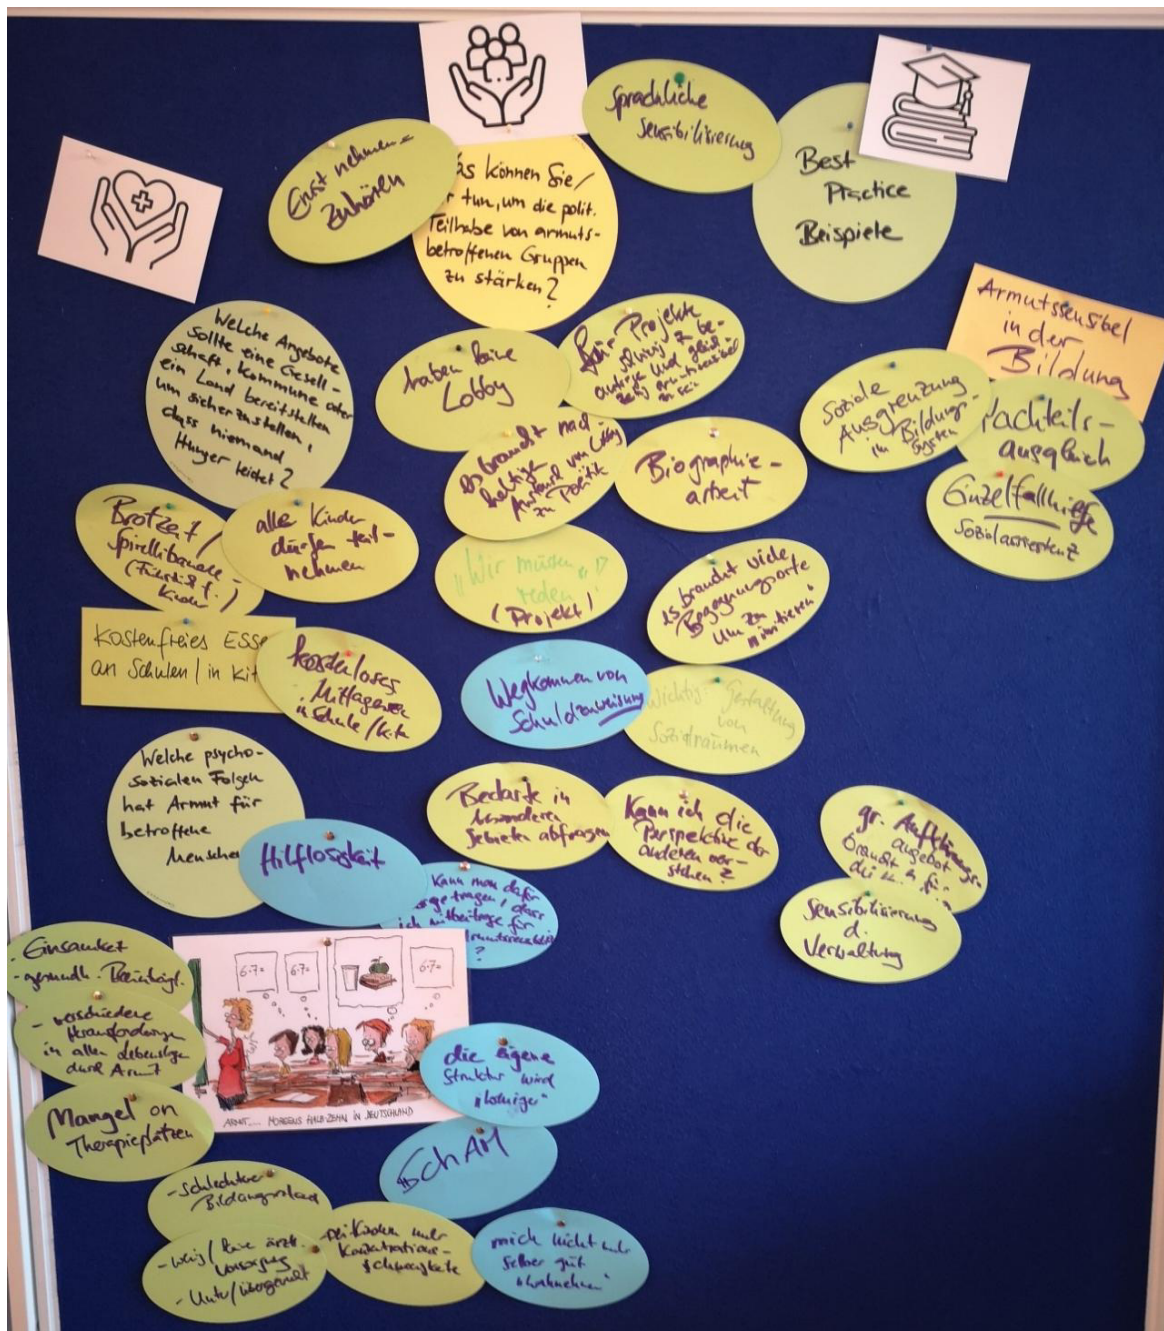 Ernst nehmen
Zuhören
as können Sie/
r tun, um die polit.
Teilhabe von armuts-
betroffenen Gruppen
zu stärken?
Sprachliche
Sensibilisierung
Best
Practice
Beispiele
Armutssensibel
in der
Bildung
Welche Angebote
sollte eine Gesell-
schaft, Kommune oder
ein Land bereitstellen
um sicherzustellen,
dass niemand
Hunger leidet?
haben keine
Lobby
für Projekte
Soziale
Ausgrenzung
im Bildungs-
system
achteils-
ausgleich
Einzelfallhilfe
Sozialassistenz
Es braucht nach-
haltigen
Austausch von Lobby
zu Politik
Biographie-
arbeit
Brotzeit/
Spirellibande
Kinder
alle Kinder
dürfen teil-
nehmen
"Wir müssen
reden"
(Projekt)
es braucht viele
Begegnungsorte
um zu
Kostenfreies Esse
an Schulen / in Kit
kostenloses
Mittagessen
Schule / Kita
Wegkommen von
Schuldzuweisung
Wichtig: Gestaltung
von
Sozialräumen
Welche psycho-
sozialen Folgen
hat Armut für
betroffene
Menschen
Hilflosigkeit
Bedarfe in
besonderen
Gebieten abfragen
Kann ich die
Perspektive der
anderen ver-
stehen?
gr. Aufklärungs-
angebot
Sensibilisierung
d.
Verwaltung
Kann man dafür
?
- Einsamkeit
- gesundh. Beeinträcht.
- verschiedene
Herausforderungen
in allen Lebenslagen
durch Armut
Mangel an
Therapieplätzen
6·7=
6·7=
6·7=
ARMUT.... MORGENS HALB ZEHN IN DEUTSCHLAND
die eigene
Struktur wird
"weniger"
"SCHAM
- schlechterer
Bildungsstand
- wenig / keine ärztl.
Versorgung
- Unter/übergewicht
bei Kindern mehr
Konzentrations-
schwierigkeiten
mich nicht mehr
selber gut
"wahrnehmen"